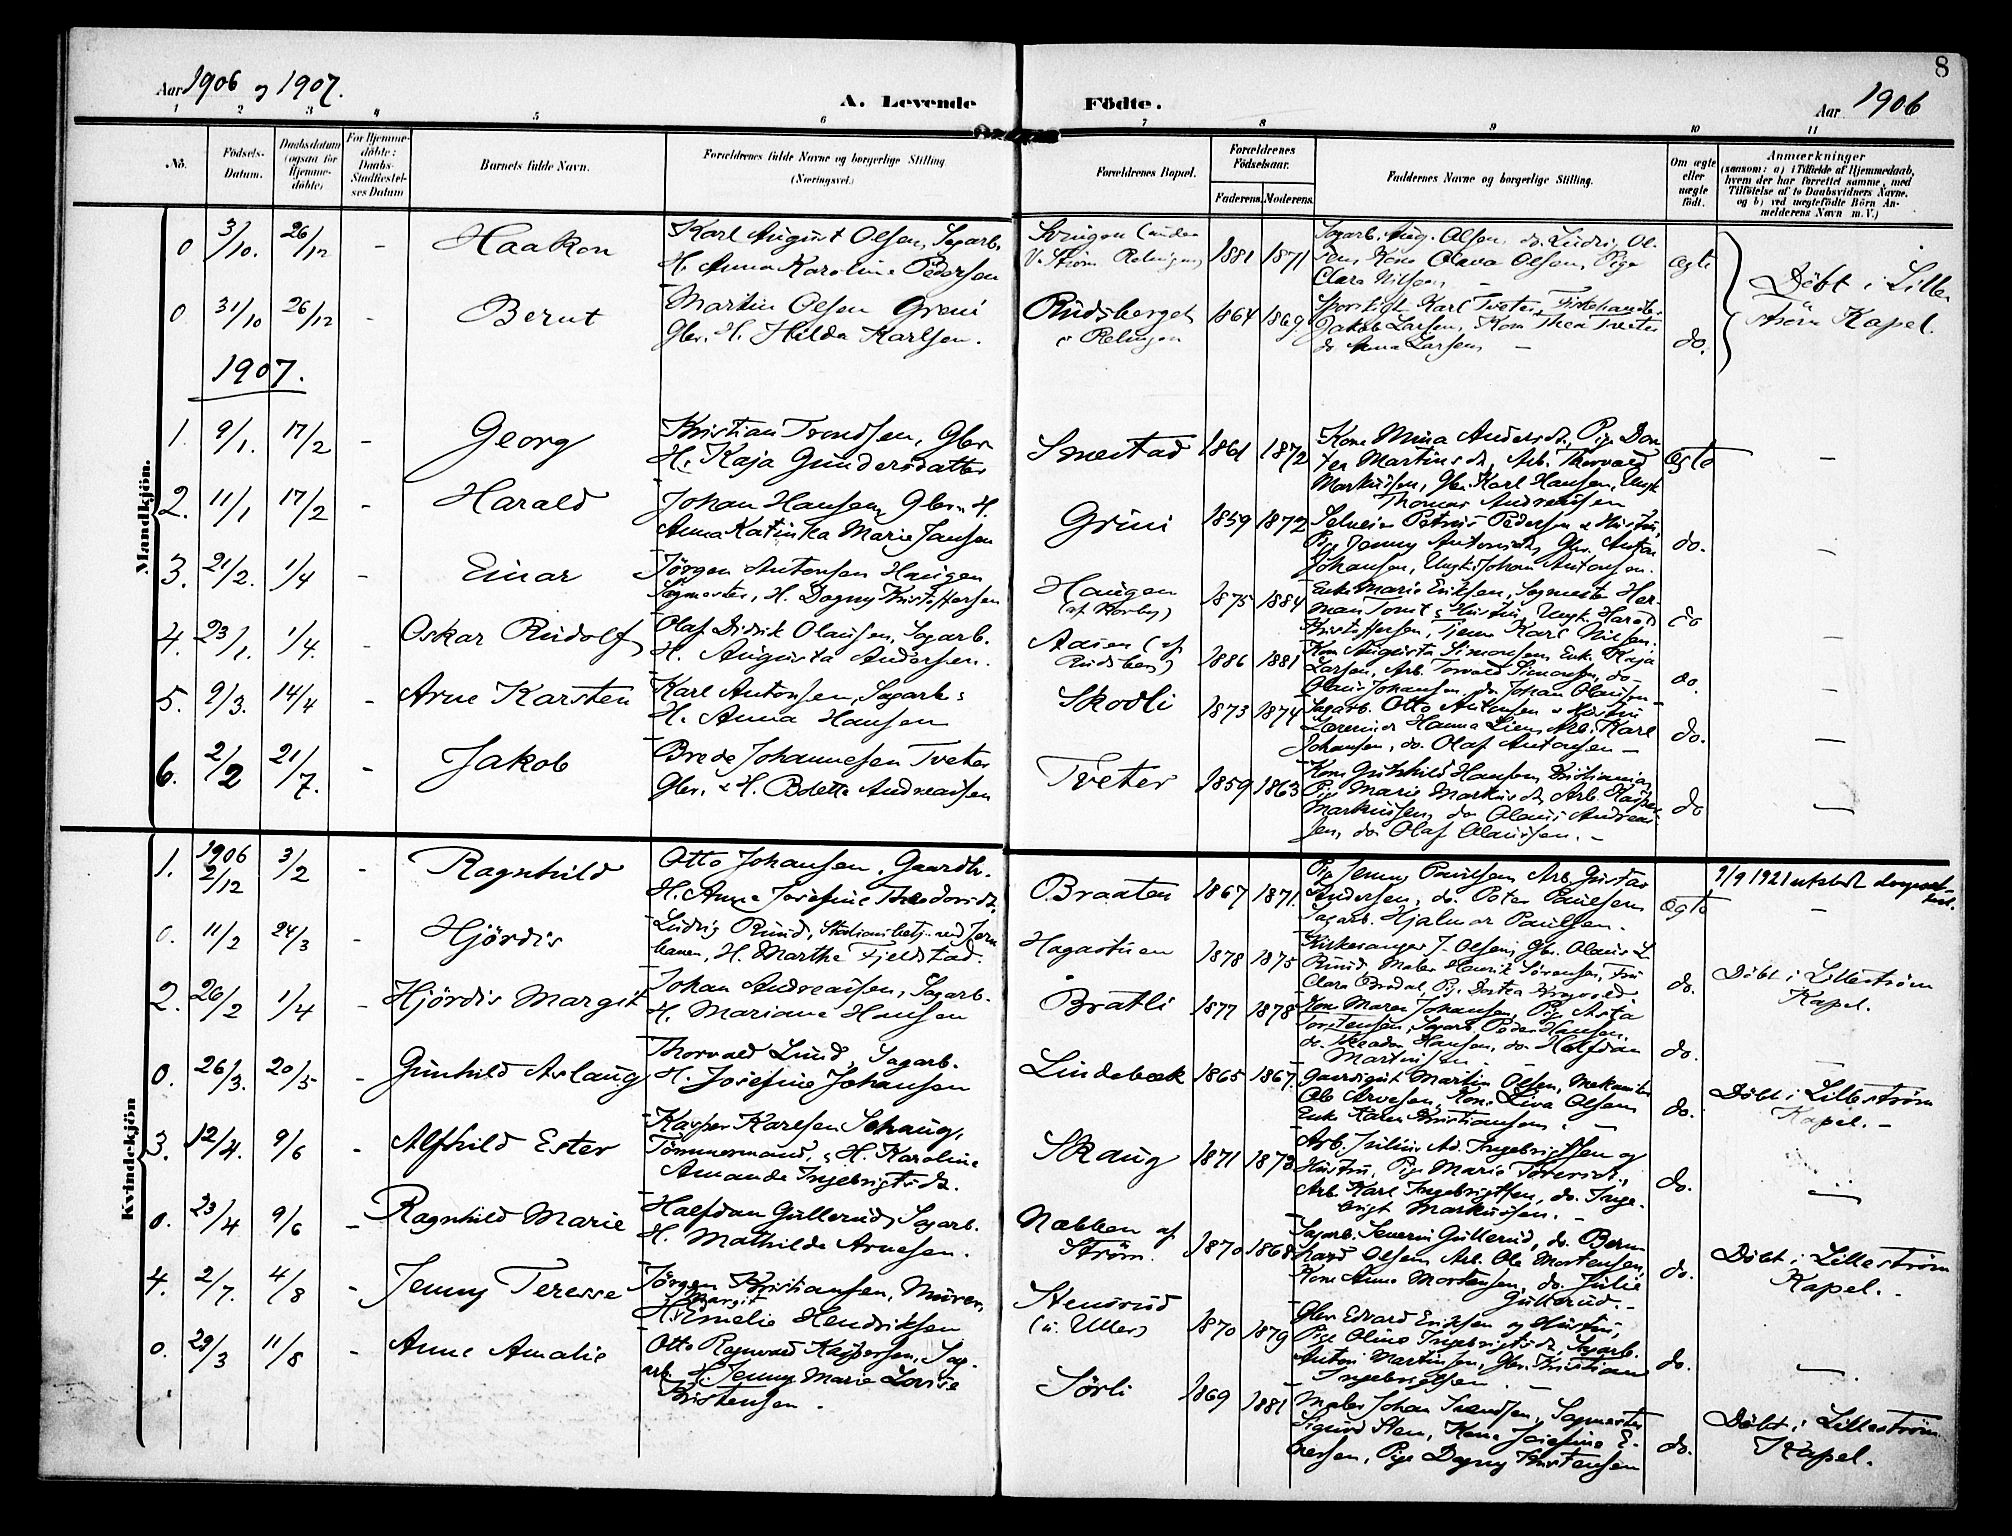 8
Aar 1906 og 1907.
A. Levende Födte.
Aar 1906
1 2 3 4 5 6 7 8 9 10 11
No.
Födsels-Datum.
Daabsdatum (ogsaa for Hjemmedöbte)
For Hjemmedöbte: Daabs-Stadfæstelses Datum
Barnets fulde Navn.
Forældrenes fulde Navne og borgerlige Stilling. (Næringsvei.)
Forældrenes Bopæl.
Forældrenes Födselsaar.
Faderens. Moderens.
Faddernes Navne og borgerlige Stilling.
Om ægte eller uægte födt.
Anmærkninger
(saasom: a) i Tilfælde af Hjemmedaab,
hvem der har forrettet samme, med
Tilföielse af to Daabsvidners Navne,
og b) ved uægtefödte Börn Anmelderens Navn m. V.)
Mandkjön.
0 3/10. 26/12 - Haakon
Karl August Olsen, Sagarb.
H. Anna Karoline Pedersen
1881 1871
Sagarb. Aug. Olsen, do. Ludvig Ol-
sen, Kone Olava Olsen, Pige
Clara Nilsen
ægte
Döbt i Lille-
ström Kapel.
0 31/10 26/12 - Bernt
Martin Olsen Grini
Gbr. H. Hilda Karlsen.
Rudsberget
i Relingen
1864 1869
Karl Tveter, Fiskehandler
Jakob Larsen, Kone Thea Tveter
do. Anna Larsen
do.
1907.
1. 9/1. 17/2 - Georg
Kristian Trondsen, Gbr.
H. Kaja Gundersdatter
Smestad 1861 1872
Kone Mina Andersd., Pige Dor-
tea Martinsd., Arb. Thorvald
Markussen, Gbr. Karl Hansen, Ungk.
Thomas Andreassen
ægte -
2. 11/1 17/2 - Harald
Johan Hansen, Gbr. H.
Anna Katinka Marie Jansen
Grini 1859 1872
Petrus Pedersen & Hustru,
Pige Jenny Antonisd., Gbr. Anton
Johansen, Ungk. Johan Antonsen.
do. -
3. 21/2. 1/4 - Einar
Jörgen Antonsen Haugen
Sagmester, H. Dagny Kristoffersen
Haugen
1875 1884
Enke Marie Eriksen, Sagmester Her-
man Tomt & Hustru, Ungk. Harald
Kristoffersen, Tjener Karl Nilsen.
do -
4. 23/1. 1/4. - Oskar Rudolf
Olaf Didrik Olausen, Sagarb.
H. Augusta Andersen.
Aasen (af
Rudsberg)
1886 1881
Kone Augusta Simonsen, Enke Kaja
Larsen, Arb. Torvald Simonsen, do
Olaus Johansen, do. Johan Olausen
do. -
5. 9/3. 14/4 - Arne Karsten
Karl Antonsen, Sagarb.
H. Anna Hansen
Skodli 1873 1874
Sagarb. Otto Antonsen & Hustru
Lærerinde Hanna Lien, Arb. Karl
Johansen, do. Olaf Antonsen -
do. -
6. 2/2 21/7. - Jakob
Brede Johannesen Tveter
Gbr. & H. Bolette Andreassen
Tveter 1859 1863
Kone Gunhild Hansen, Kristiania,
Pige Marie Markusd., Arb. Kasper
Markussen, do. Olaus Andreas-
sen, do. Olaf Olaussen. -
do -
Kvindekjön
1. 1906 2/12 3/2 - Ragnhild
Otto Johansen, Gaardbr.
H. Anna Josefine Theodorsd.
Braaten 1867 1871
Pige Jenny Paulsen, Arb. Gustav
Andersen, do. Peter Paulsen,
Sagarb. Hjalmar Paulsen.
ægte
9/9 1921 utstedt
0. 11/2 24/3 - Hjördis
Ludvig Ruud, Stationsbetj. ved Jern-
banen, H. Marthe Fjeldstad.
Hagastuen 1878 1875
Kirkesanger J. Olsen, Gbr. Olaus L.
Ruud, Maler Henrik Sörensen, Fru
Clara Brudal, Pige Dortea
do.
Döbt i Lilleström
Kapel.
2. 26/2 1/4 - Hjördis Margit
Johan Andreassen, Sagarb.
H. Mariane Hansen
Bråtli 1877 1878
Kone Maren Johansen, Pige Asta
Torstensen, Sagarb. Peder Hansen,
do. Teodor Hansen, do. Halfdan
Martinsen
do. -
0. 26/3. 20/5 - Gunhild Aslaug
Thorvald Lund, Sagarb.
H. Josefine Johansen
Lindebæk 1865 1867.
Gaardgut Martin Olsen, Mekaniker
Ole Arvesen, Kone Liva Olsen
Enke Karen Kristiansen. -
do.
Döbt i Lilleström
Kapel. -
3. 12/4. 9/6 - Alfhild Ester
Kasper Karlsen Schaug,
Tömmermand, & H. Karoline
Amanda Ingebrigtsd.
Skaug 1871 1873
Arb. Julius Ad. Ingebrigtsen og
Hustru, Pige Marie Toresd.,
Arb. Karl Ingebrigtsen, do. Inge-
brigt Markussen. -
do. -
0. 23/4 9/6 - Ragnhild Marie
Halfdan Gullerud, Sagarb.
H. Mathilde Arnesen.
Næbben af
Ström.
1870 1868
Sagarb. Severin Gullerud, do. Bern-
hard Olsen, Arb. Ole Mortensen,
Kone Anne Mortensen, do. Julie
Gullerud. -
do.
Döbt i Lilleström
Kapel. -
4. 2/7. 4/8 - Jenny Teresse
Jörgen Kristiansen, Murer,
H. Margit Emelie Hendriksen
Stensrud
(u. Uller)
1870 1879
Gbr. Edvard Eriksen og Hustru,
Pige Oline Ingebrigtsd., Sagarb.
Anton Martinsen, Gbr. Kristian
Ingebrigtsen
do. -
0. 29/3 11/8 - Anne Amalie
Otto Ragnvald Kaspersen, Sag-
arb. H. Jenny Marie Lovise
Kristensen.
Sörli 1869 1881
Maler Johan Svendsen, Sagmester
Sigurd Sten, Kone Josefine E-
nersen, Pige Dagny Kristensen
do.
Döbt i Lilleström
Kapel.